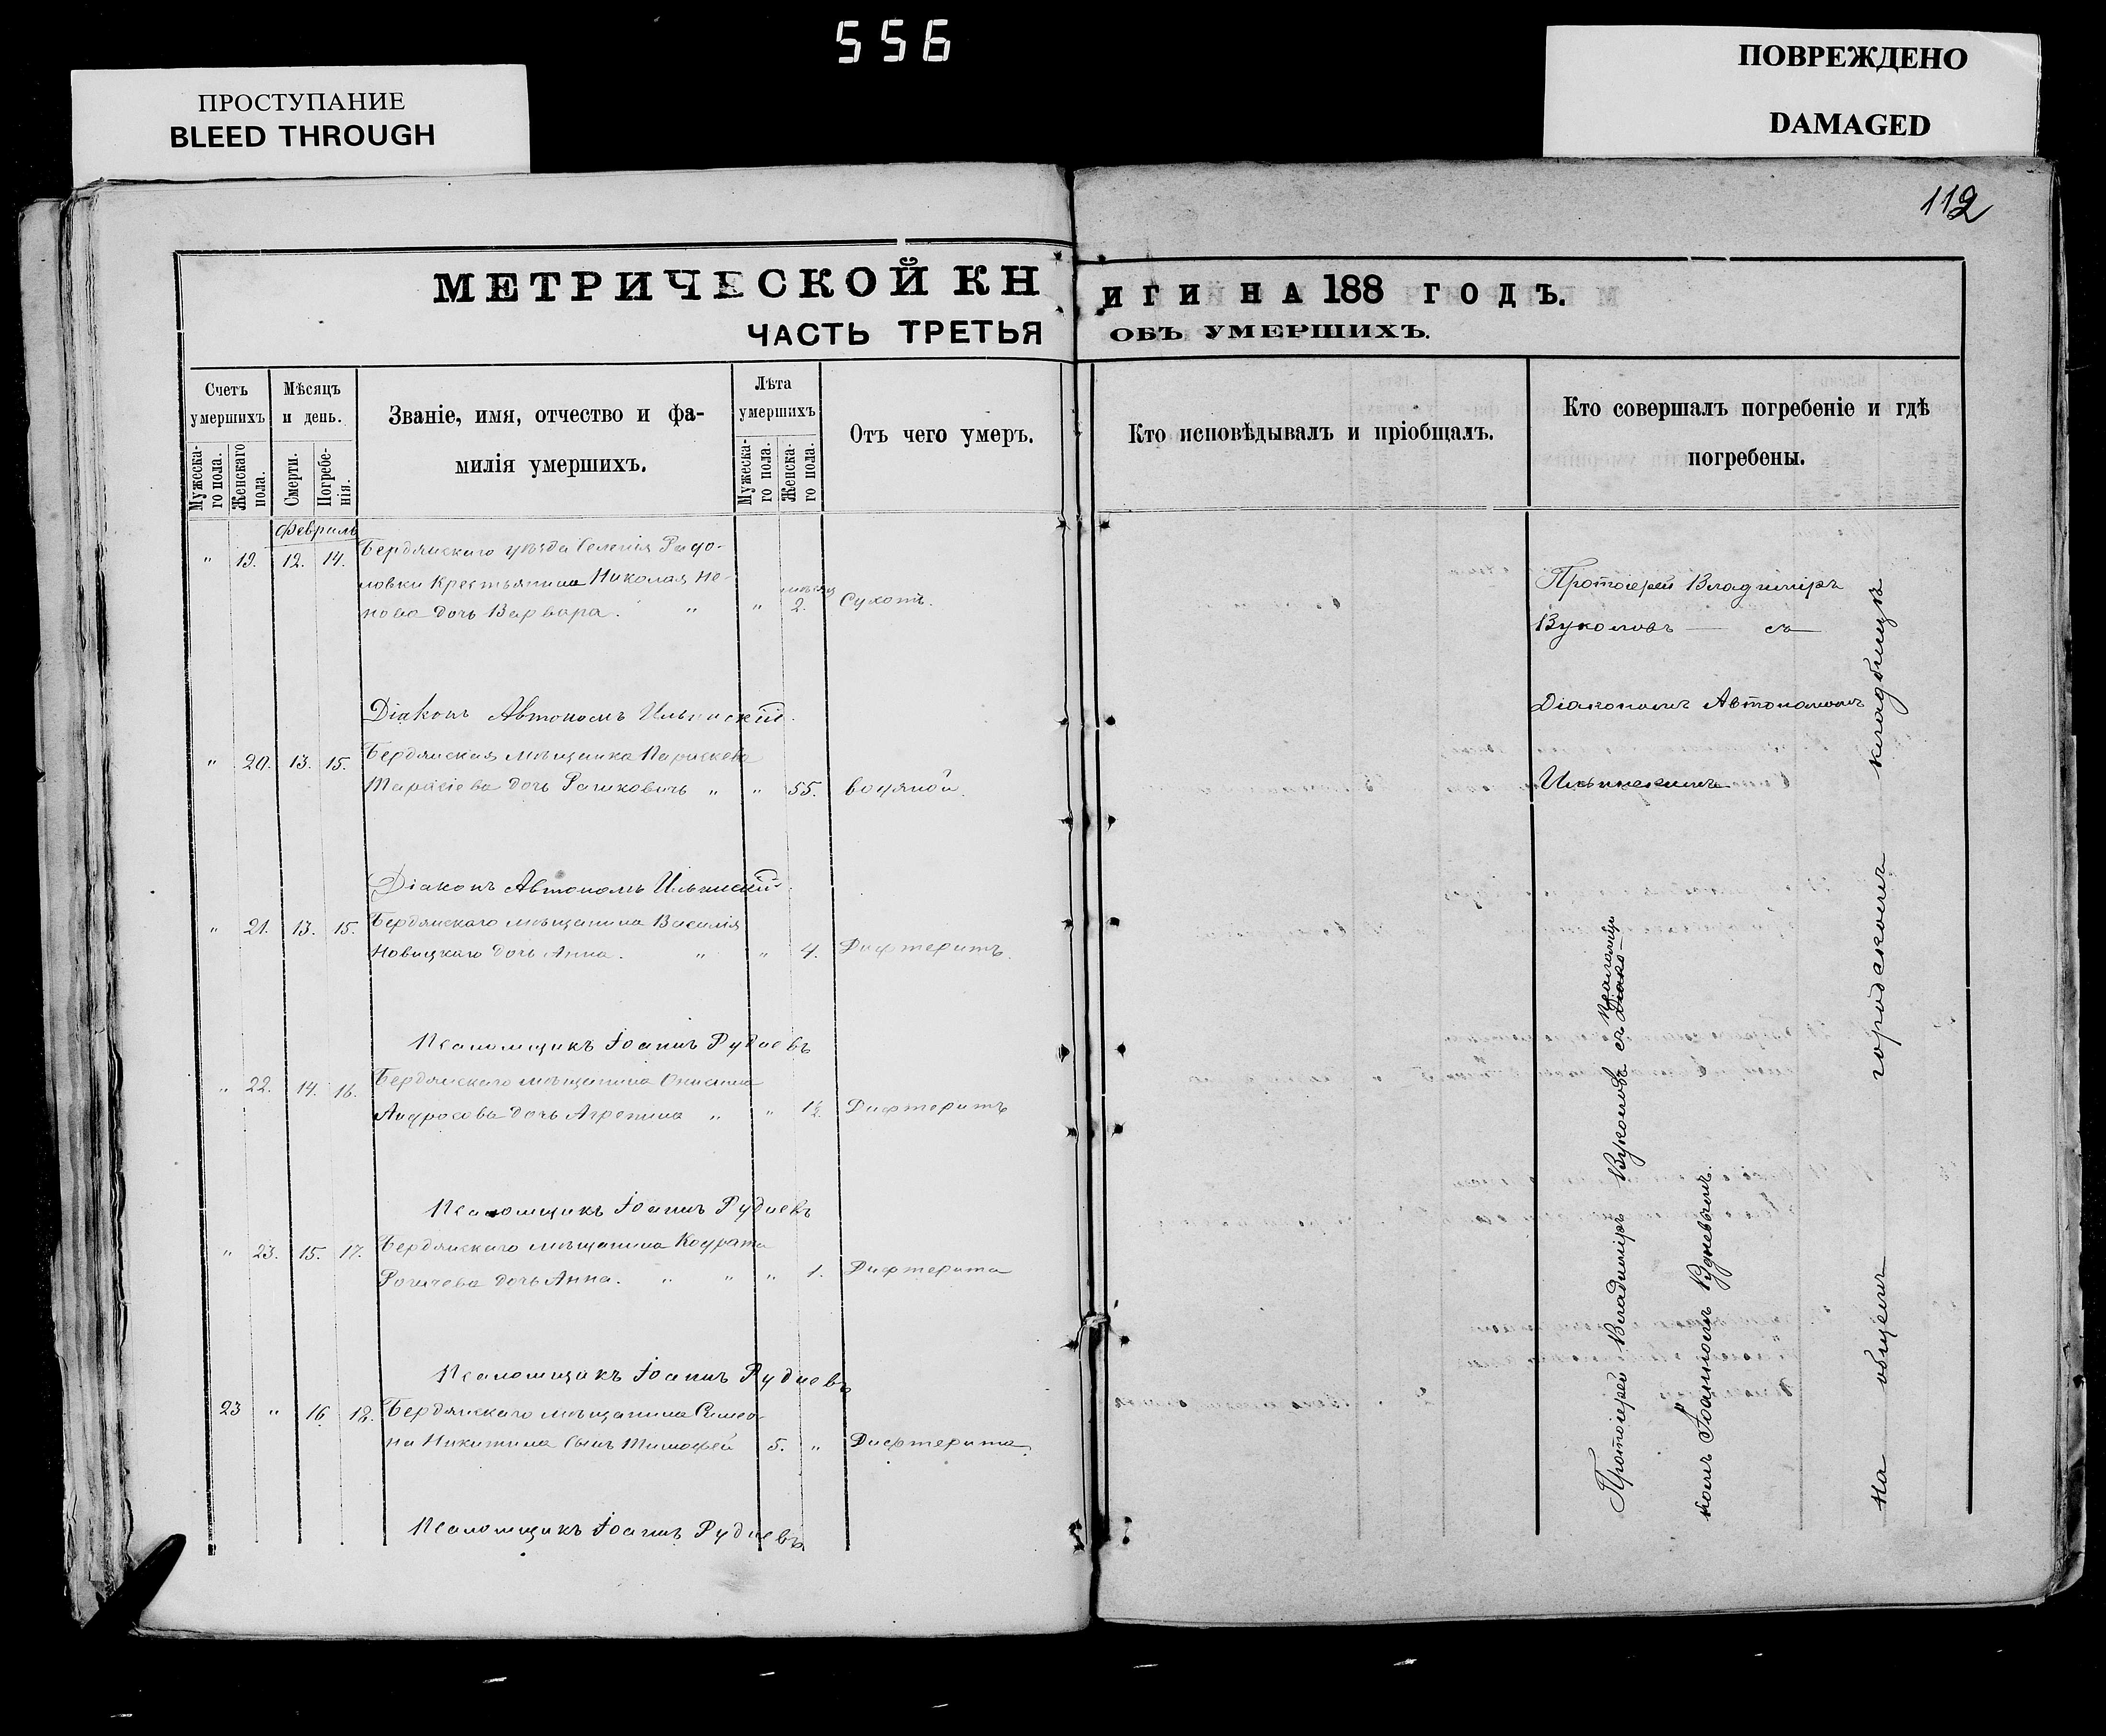 556
ПРОСТУПАНИЕ
BLEED THROUGH
ПОВРЕЖДЕНО
DAMAGED
112
МЕТРИЧЕСКОЙ КНИГИ НА 188 ГОДЪ.
ЧАСТЬ ТРЕТЬЯ ОБЪ УМЕРШИХЪ.
Счетъ умершихъ
Мужеска-го пола.
Женскаго пола.
Мѣсяцъ и день.
Смерти.
Погребе-нія.
Званіе, имя, отчество и фа-
милія умершихъ.
Лѣта умершихъ
Мужеска-го пола.
Женска-го пола.
Отъ чего умеръ.
Кто исповѣдывалъ и пріобщалъ.
Кто совершалъ погребеніе и гдѣ
погребены.
Февраль
" 19. 12. 14. Бердянскаго уѣзда селенія
Крестьянина Николая Не-
нова дочь Варвара. " " 2. Сухотъ.
Діаконъ Автономъ Ильинскій.
" 20. 13. 15. Бердянская мѣщанка Параскева
Тарасіева дочь Рашковичъ " " 55. водяной.
Діаконъ Автономъ Ильинскій.
" 21. 13. 15. Бердянскаго мѣщанина Василія
Новицкаго дочь Анна. " " 4. Дифтеритъ.
Псаломщикъ Іоаннъ Рудневъ
" 22. 14. 16. Бердянскаго мѣщанина
Андросова дочь Агрепина " " 1½ Дифтеритъ
Псаломщикъ Іоаннъ Рудневъ
" 23. 15. 17. Бердянскаго мѣщанина Кодрата
дочь Анна. " " " 1. Дифтерита
Псаломщикъ Іоаннъ Рудневъ
23 " 16 18. Бердянскаго мѣщанина Симео-
на Никитина сынъ Тимофей 5. " Дифтерита.
Псаломщикъ Іоаннъ Рудневъ
Протоіерей Владиміръ
Вуколовъ — съ —
Діакономъ Автономомъ
Ильинскимъ
Протоіерей Владиміръ Вуколовъ съ Псаломщи-
комъ Іоанномъ Рудневымъ.
На общемъ городскомъ кладбищѣ